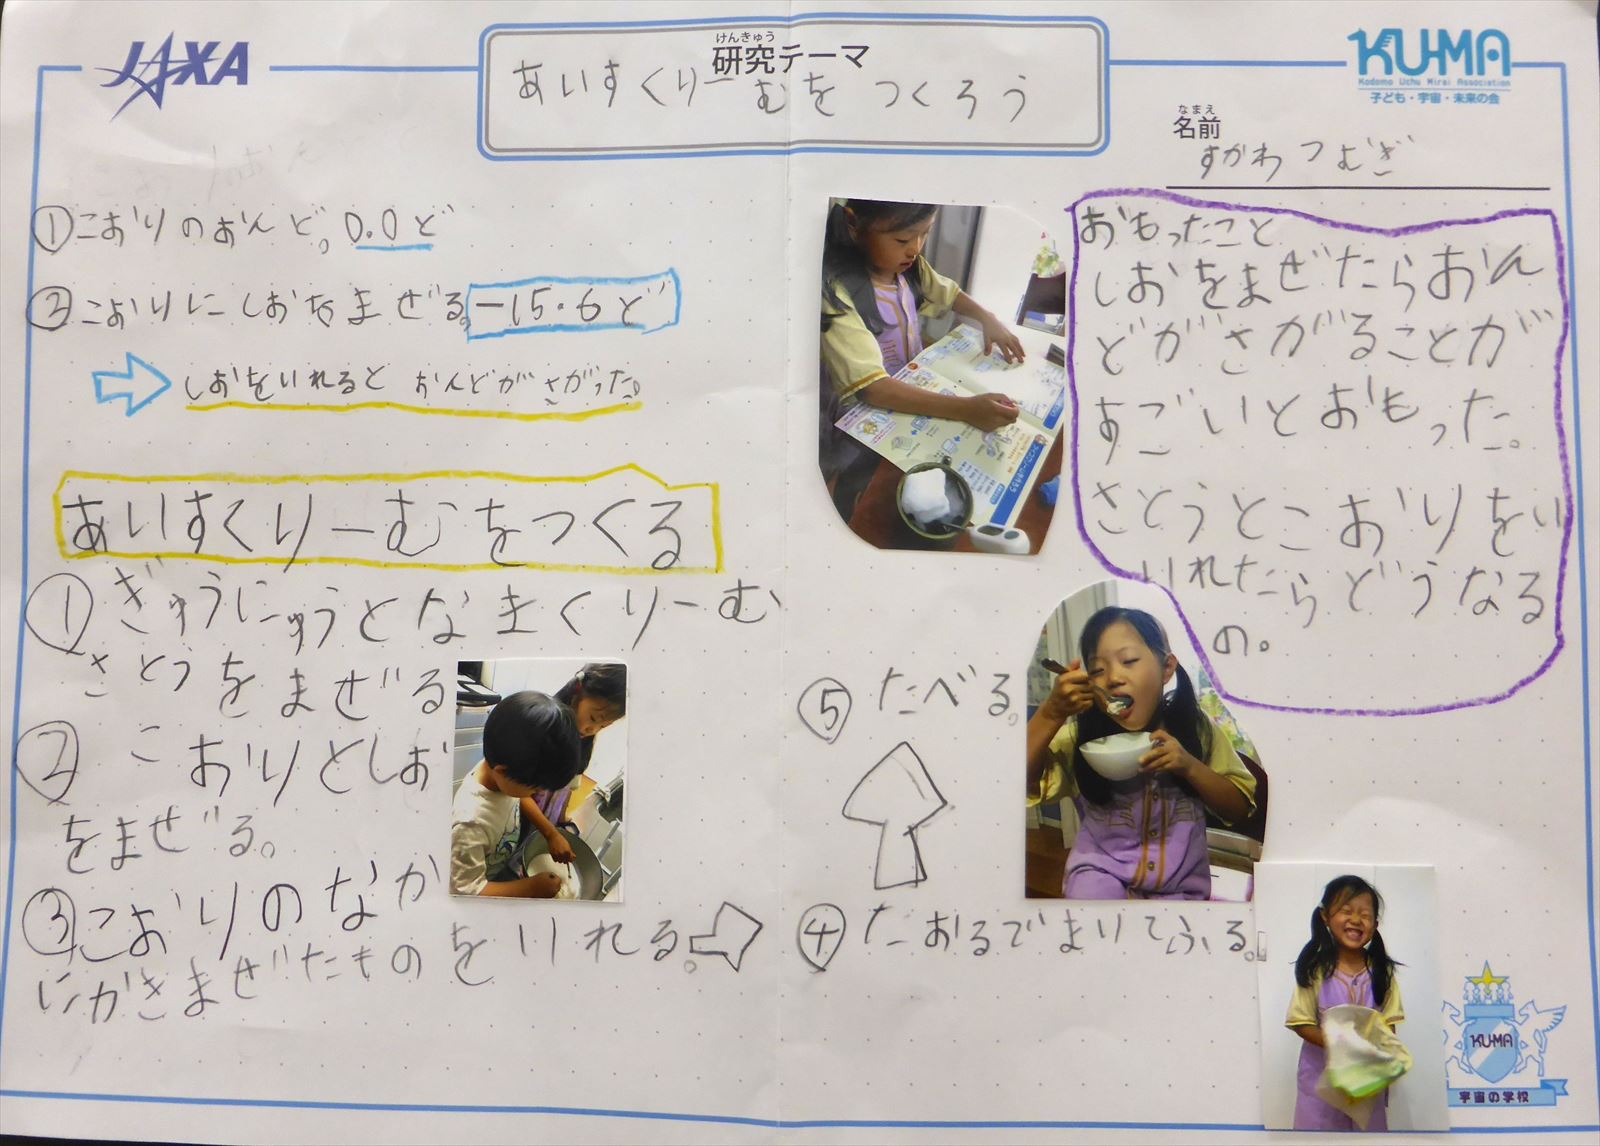 JAXA
けんきゅう
研究テーマ
あいすくりーむを つくろう
KU-MA
Kodomo Uchu Mirai Association
子ども・宇宙・未来の会
なまえ
名前
すがわ つむぎ
①こおりのおんど。0.0ど
②こおりにしおをまぜる。-15.6ど
しおをいれると おんどが さがった。
あいすくりーむをつくる
①ぎゅうにゅうとなまくりーむ
さとうをまぜる
② こおりとしお
をまぜる。
③こおりのなか
にかきまぜたものをいれる。
④たおるでまいてふる。
⑤たべる。
おもったこと
しおをまぜたらおん
どがさがることが
すごいとおもった。
さとうとこおりをい
いれたらどうなる
の。
KU-MA
宇宙の学校